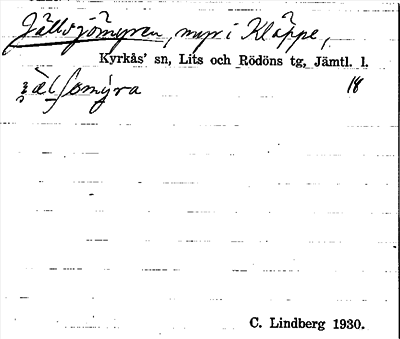 Jällsjömyren, myr i Kläppe,
Kyrkås' sn, Lits och Rödöns tg, Jämtl. l.
18
C. Lindberg 1930.